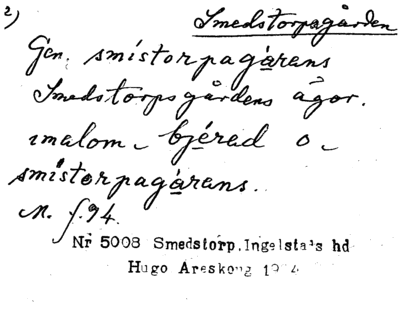 2)
Smedstorpagården
Gen. smistorpagarans
Smedstorpsgårdens ägor.
imalom bjérad o
smistorpagarans.
M. f. 94.
Nr 5008 Smedstorp. Ingelstads hd
Hugo Areskoug